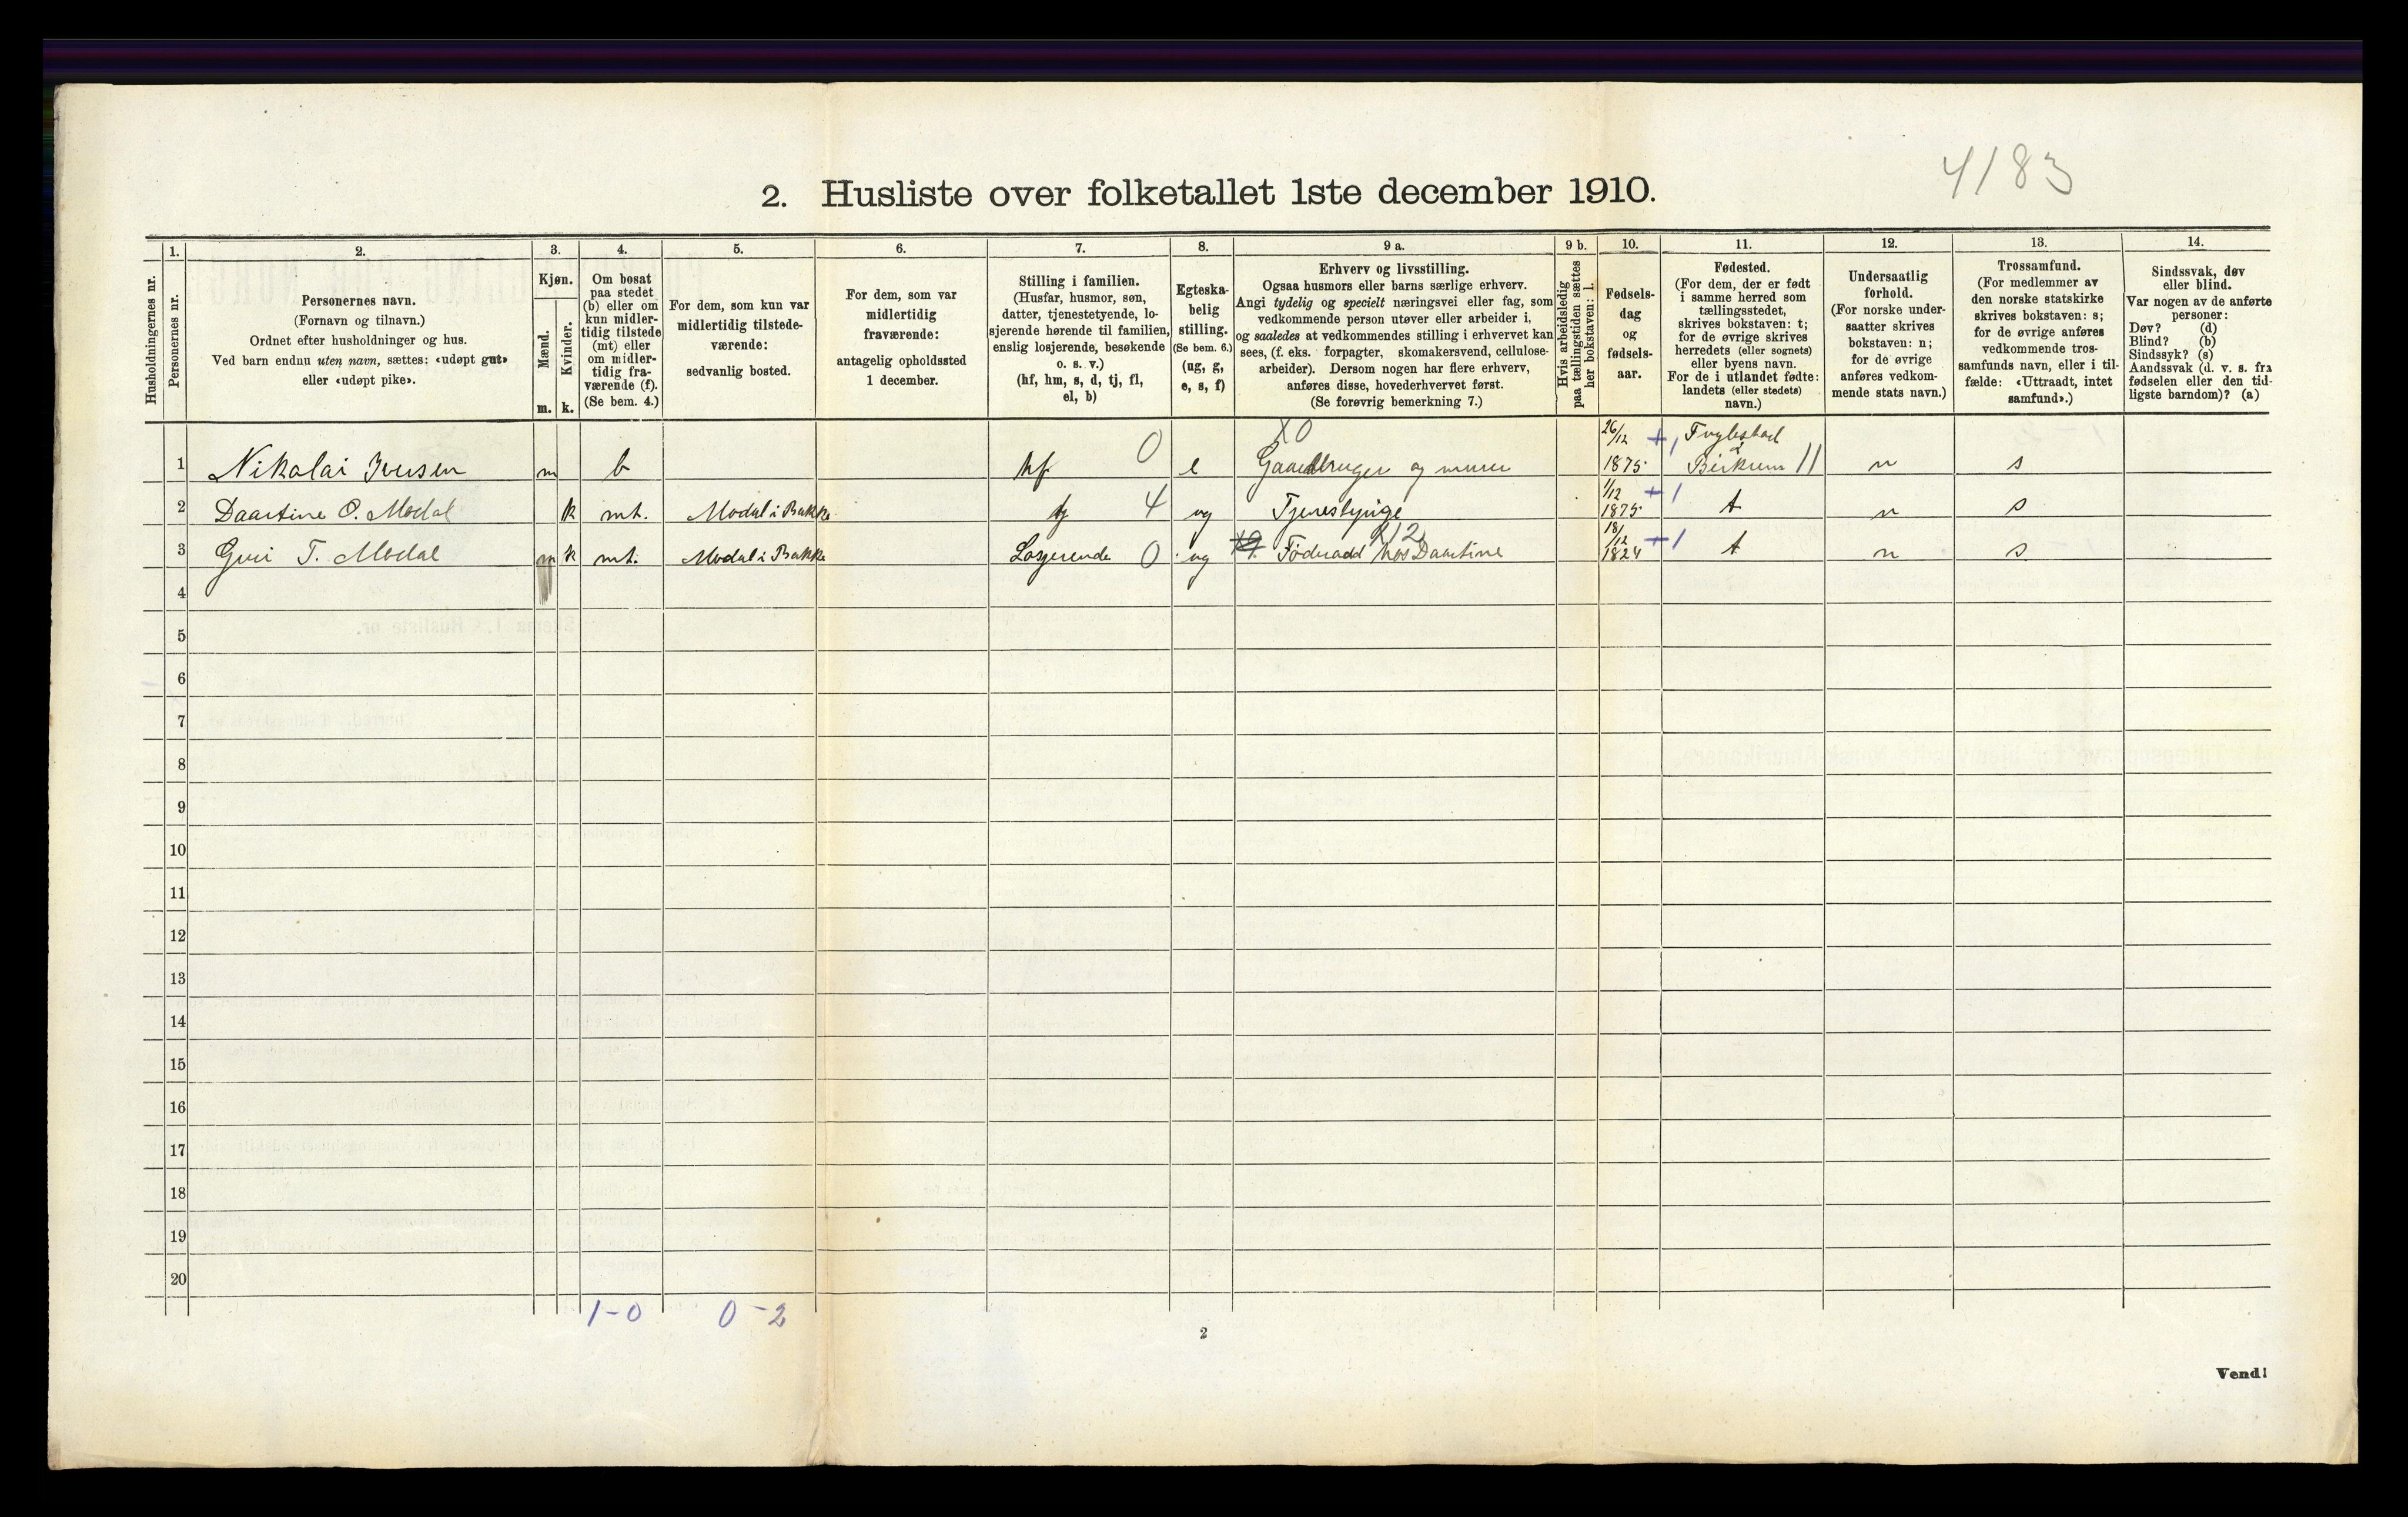 4183
2. Husliste over folketallet 1ste december 1910.
Husholdningernes nr.
1.
Personernes nr.
2.
Personernes navn.
(Fornavn og tilnavn.)
Ordnet efter husholdninger og hus.
Ved barn endnu uten navn, sættes: «udøpt gut»
eller «udøpt pike».
3.
Kjøn.
Mænd.
Kvinder.
m. k.
4.
Om bosat
paa stedet
(b) eller om
kun midler-
tidig tilstede
(mt) eller
om midler-
tidig fra-
værende (f).
(Se bem. 4.)
5.
For dem, som kun var
midlertidig tilstede-
værende:
sedvanlig bosted.
6.
For dem, som var
midlertidig
fraværende:
antagelig opholdssted
1 december.
7.
Stilling i familien.
(Husfar, husmor, søn,
datter, tjenestetyende, lo-
sjerende hørende til familien,
enslig losjerende, besøkende
o. s. v.)
(hf, hm, s, d, tj, fl,
el, b)
8.
Egteska-
belig
stilling.
(Se bem. 6.)
(ug, g,
e, s, f)
9 a.
Erhverv og livsstilling.
Ogsaa husmors eller barns særlige erhverv.
Angi tydelig og specielt næringsvei eller fag, som
vedkommende person utøver eller arbeider i,
og saaledes at vedkommendes stilling i erhvervet kan
sees, (f. eks. forpagter, skomakersvend, cellulose-
arbeider). Dersom nogen har flere erhverv,
anføres disse, hovederhvervet først.
(Se forøvrig bemerkning 7.)
9 b.
Hvis arbeidsledig
paa tællingstiden sættes
her bokstaven: l.
10.
Fødsels-
dag
og
fødsels-
aar.
11.
Fødested.
(For dem, der er født
i samme herred som
tællingsstedet,
skrives bokstaven: t;
for de øvrige skrives
herredets (eller sognets)
eller byens navn.
For de i utlandet fødte:
landets (eller stedets)
navn.)
12.
Undersaatlig
forhold.
(For norske under-
saatter skrives
bokstaven: n;
for de øvrige
anføres vedkom-
mende stats navn.)
13.
Trossamfund.
(For medlemmer av
den norske statskirke
skrives bokstaven: s;
for de øvrige anføres
vedkommende tros-
samfunds navn, eller i til-
fælde: «Uttraadt, intet
samfund».)
14.
Sindssvak, døv
eller blind.
Var nogen av de anførte
personer:
Døv? (d)
Blind? (b)
Sindssyk? (s)
Aandssvak (d. v. s. fra
fødselen eller den tid-
ligste barndom)? (a)
1 Nikolai Iversen m b hf 0 e X0 Gaardbruger og murer 26/12 1875 + 1 Birkrem 11 n s
2 Daartine O. Modal k mt. Modal i Bakke tj 4 ug Tjenestpige 1/12 1875 + 1 t n s
3 Guri T. Modal k mt. Modal i Bakke Losjerende 0 ug Föderaad hos Daartine 18/12 1824 + 1 t n s
4
5
6
7
8
9
10
11
12
13
14
15
16
17
18
19
20
1-0 0-2
2
Vend!